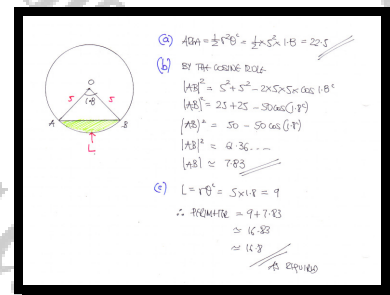 (a) AREA = ½r²θᶜ = ½×5²×1.8 = 22.5
(b) BY THE COSINE RULE
|AB|² = 5²+5²-2×5×5×cos 1.8ᶜ
|AB|² = 25+25-50cos(1.8ᶜ)
|AB|² = 50-50cos(1.8ᶜ)
|AB|² = 61.36....
|AB| ≃ 7.83
(c) L = rθᶜ = 5×1.8 = 9
∴ PERIMETER = 9+7.83
≃ 16.83
≃ 16.8
AS REQUIRED
O
5 1.8 5
A B
L